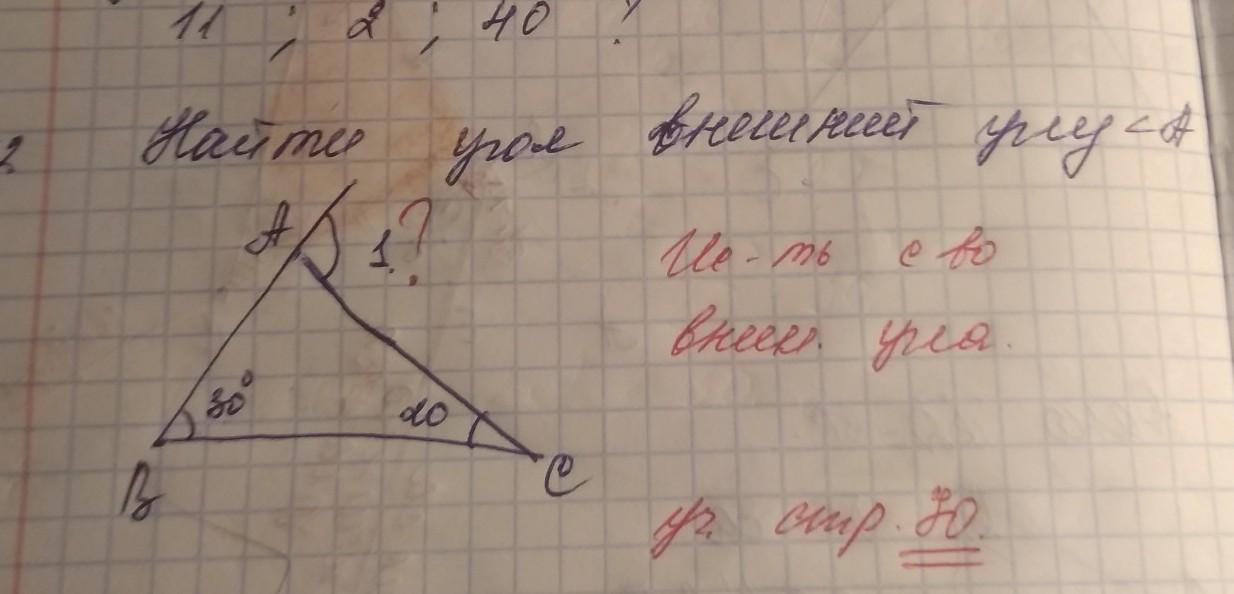 11 ; 2 ; 40 ?
2 Найти угол внешний углу <A
A 1. ?
Ис-ть с во
внеш. угла.
30° 20
B C
уч. стр. 70.